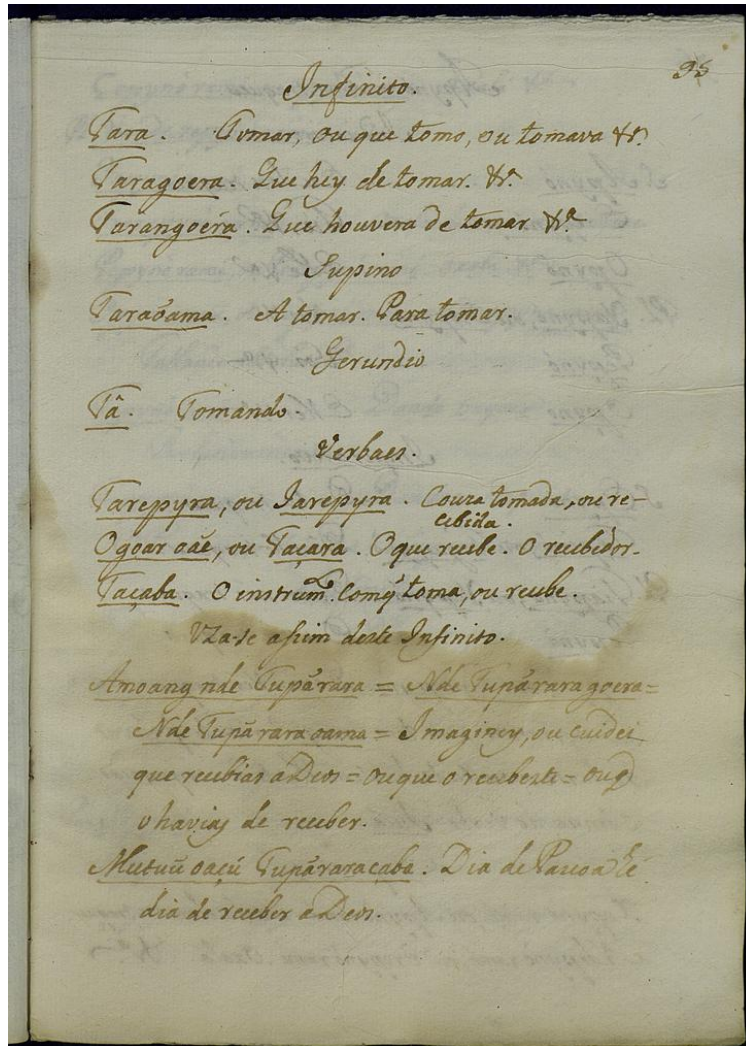 95
Infinito.
Tara. Tomar, ou que tomo, ou tomava &ª
Taragoera. Que hey de tomar. &ª
Tarangoéra. Que houvera de tomar &ª
Supino
Taraõama. A tomar. Para tomar.
Gerundio
Tâ. Tomando.
Verbaes.
Tarepyra, ou Iarepyra. Couza tomada, ou re-
cibida.
Ogoar oáe, ou Taçara. O que recebe. O recebidor.
Taçaba. O instrum.to com q̃ toma, ou recebe.
Uza-se assim deste Infinito.
Amoang nde Tupãrara = Nde Tupãrara goera =
Nde Tupãrara oama = Imaginey, ou cuidei
que recebias a Deos = ou que o recebeste = ou q̃
o havias de receber.
Mutuũ oaçú Tupãraraçaba. Dia de Pascoa hé
dia de receber a Deos.